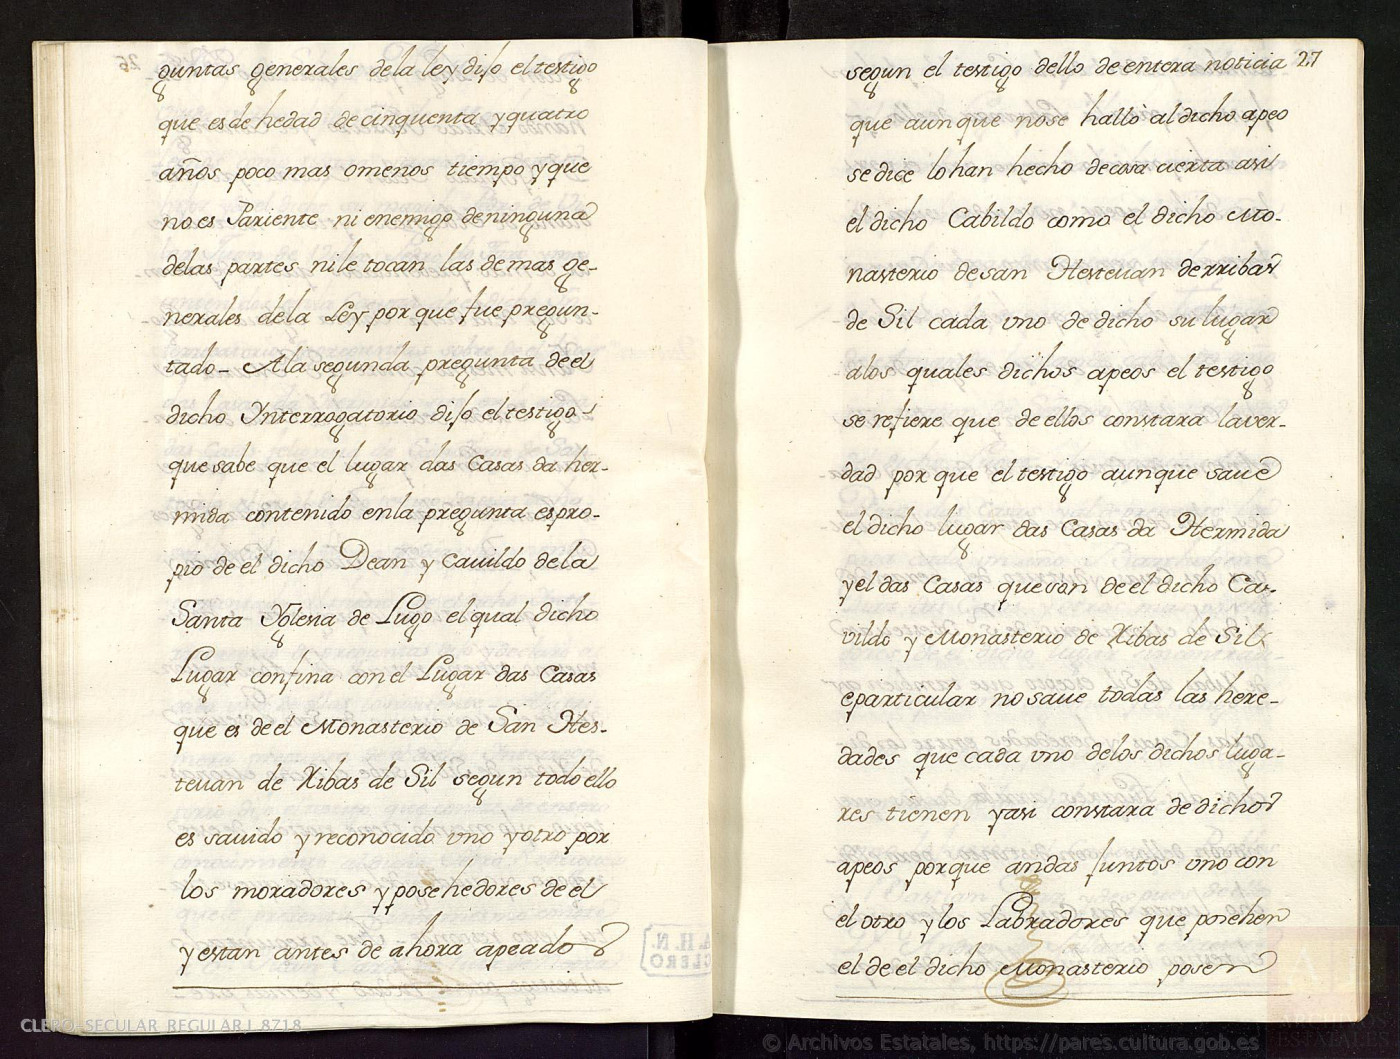 guntas generales dela ley dijo el testigo
que es de hedad de cinquenta y quatro
años poco mas omenos tiempo y que
no es Pariente ni enemigo de ninguna
delas partes nile tocan las demas ge-
nerales dela Ley porque fue pregun-
tado- Ala segunda pregunta de el
dicho Ynterrogatorio dijo el testigo
que sabe que el lugar das Casas da her-
mida contenido enla pregunta es pro-
pio de el dicho Dean y Cauildo dela
Santa Yglesia de Lugo el qual dicho
Lugar confina con el Lugar das Casas
que es de el Monasterio de San Hes-
teuan de Ribas de Sil segun todo ello
es sauido y reconocido uno y otro por
los moradores y posehedores de el
y estan antes de ahora apeado
27
segun el testigo dello de entera noticia
que aunque nose hallò al dicho apeo
se dice lo han hecho de cosa cierta asi
el dicho Cabildo como el dicho Mo-
nasterio de san Hesteuan derribas
de Sil cada uno de dicho su lugar
alos quales dichos apeos el testigo
se refiere que de ellos constara laver-
dad porque el testigo aunque saue
el dicho lugar das Casas da Hermida
y el das Casas que son de el dicho Ca-
vildo y Monasterio de Ribas de Sil
eparticular no saue todas las here-
dades que cada uno delos dichos luga-
res tienen y asi constara de dichos
apeos porque andas juntos uno con
el otro y los Labradores que posehen
el de el dicho Monasterio posen
A.H.N.
CLERO
CLERO-SECULAR_REGULAR,L.8718
© Archivos Estatales, https://pares.cultura.gob.es